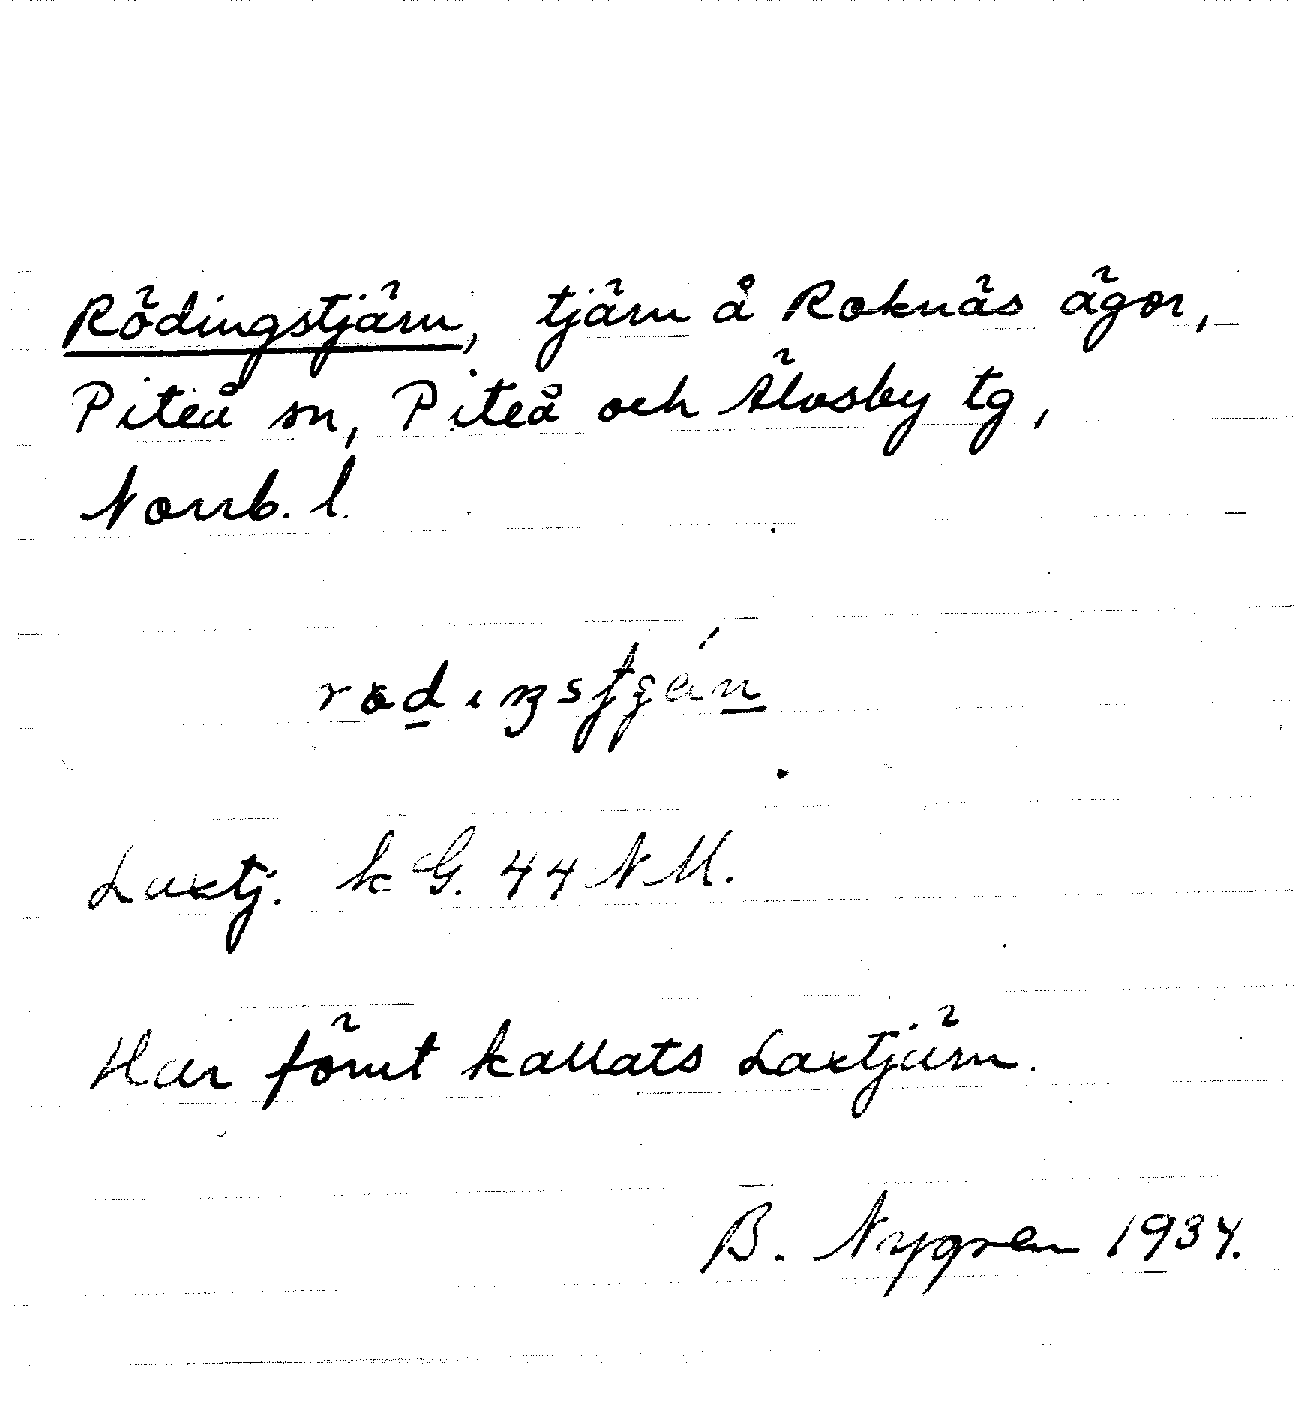 Rödingstjärn, tjärn å Roknäs ägor,
Piteå sn, Piteå och Älvsby tg,
Norrb. l.
Laxtj. kG. 44 NM.
Har förut kallats Laxtjärn.
B. Nygren 1934.